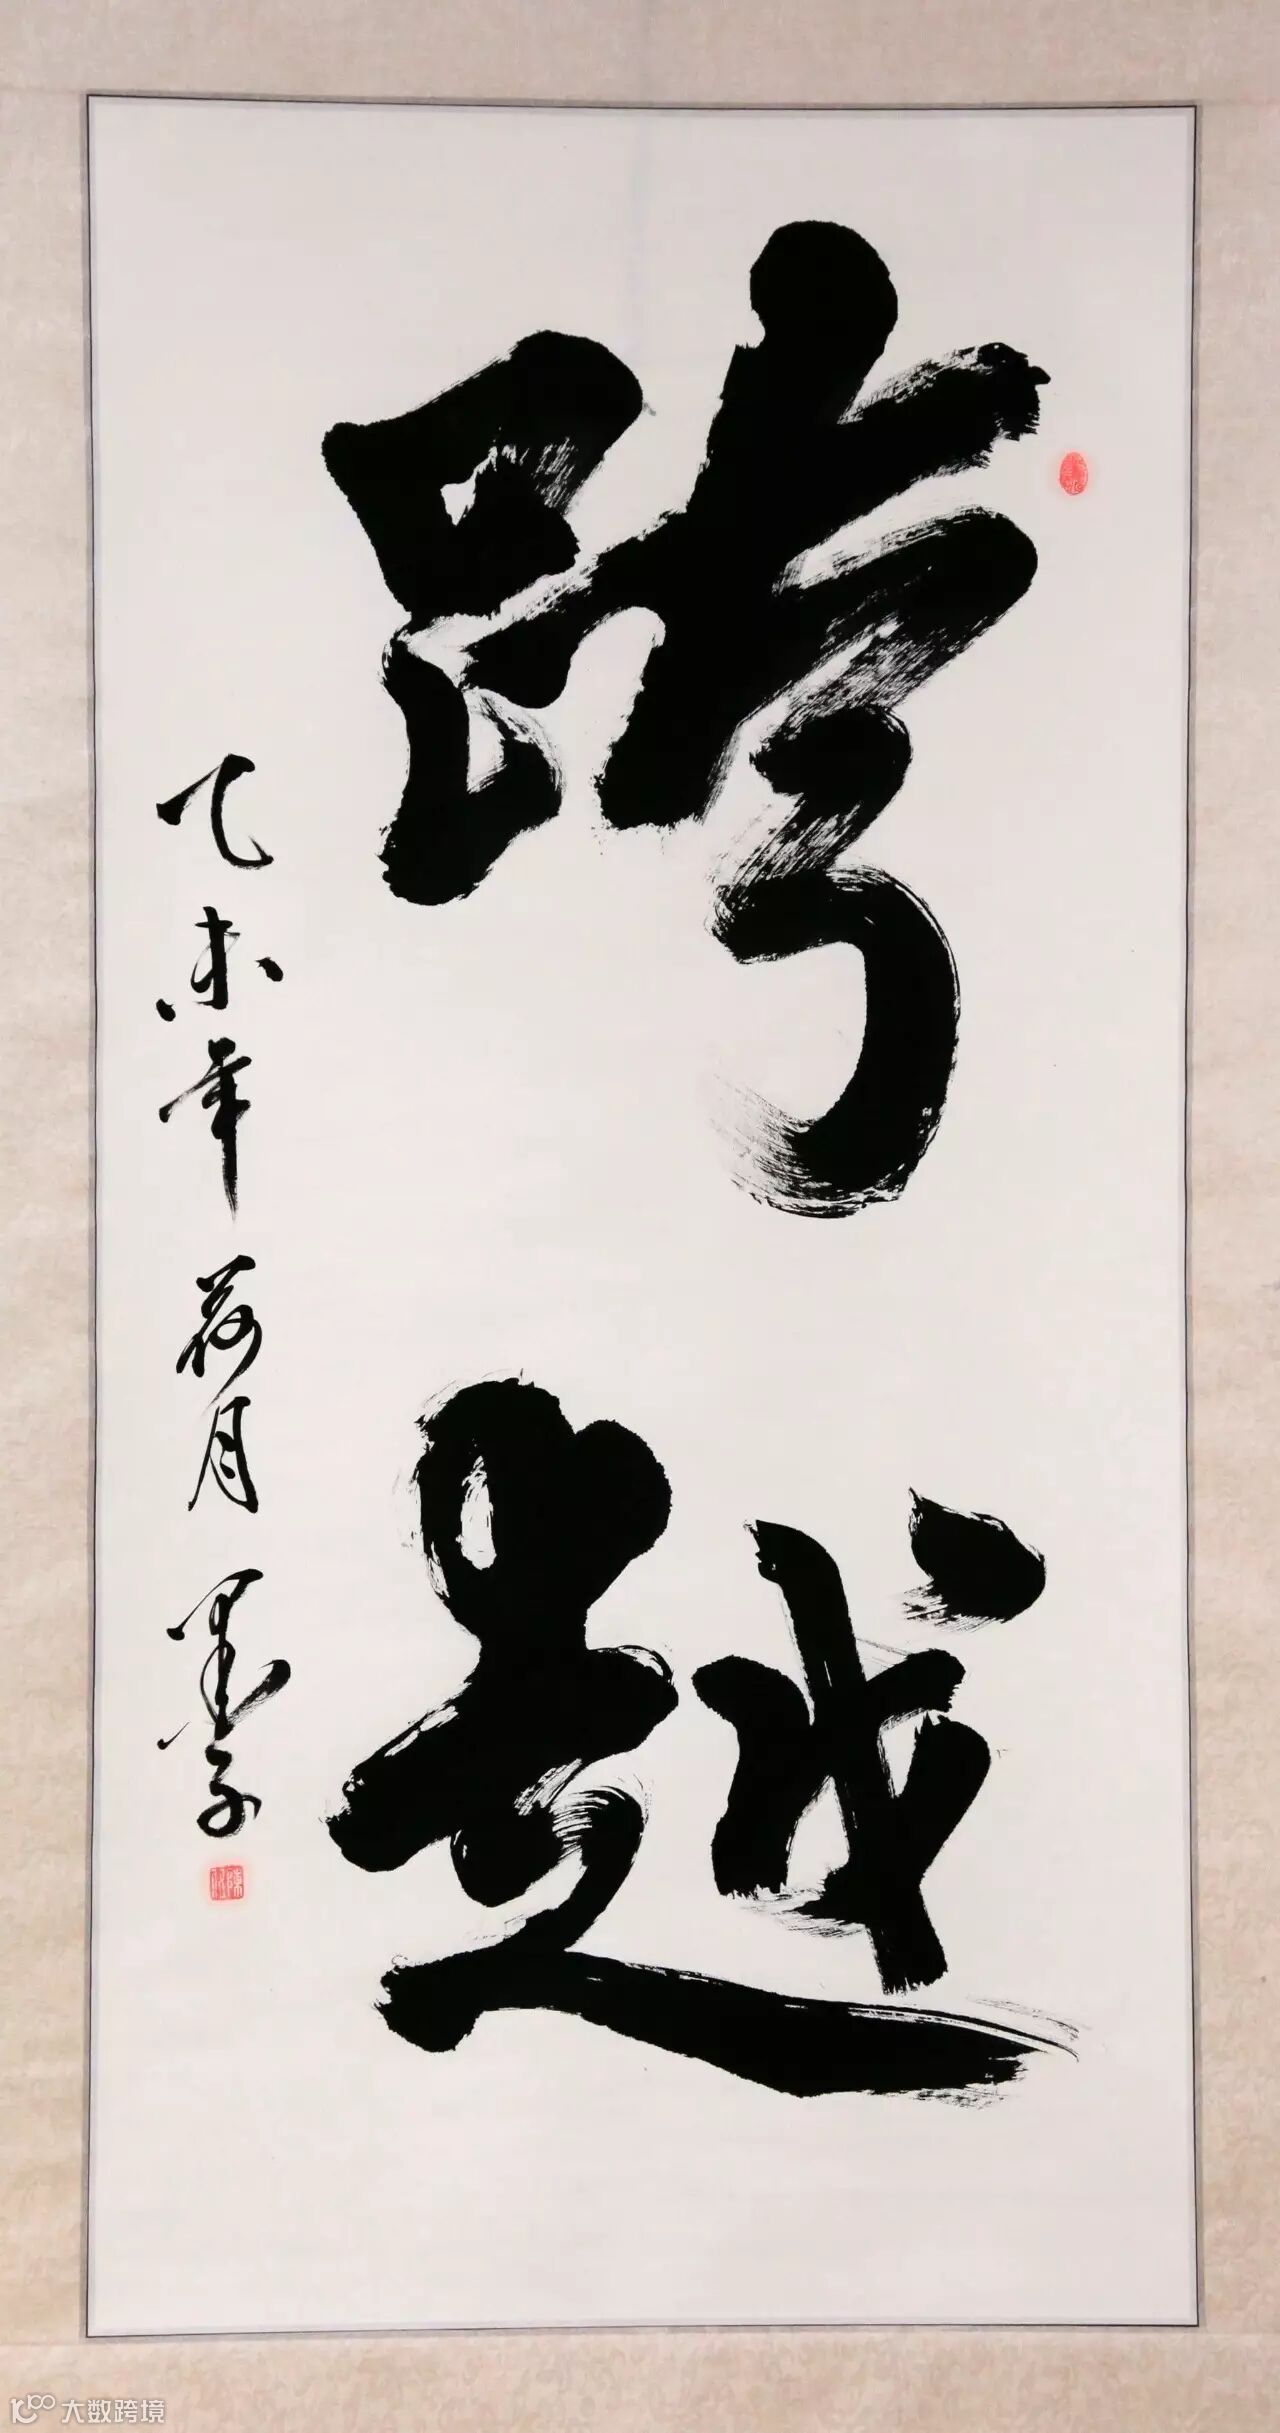 跨越
乙未年 荷月 墨子
大数跨境